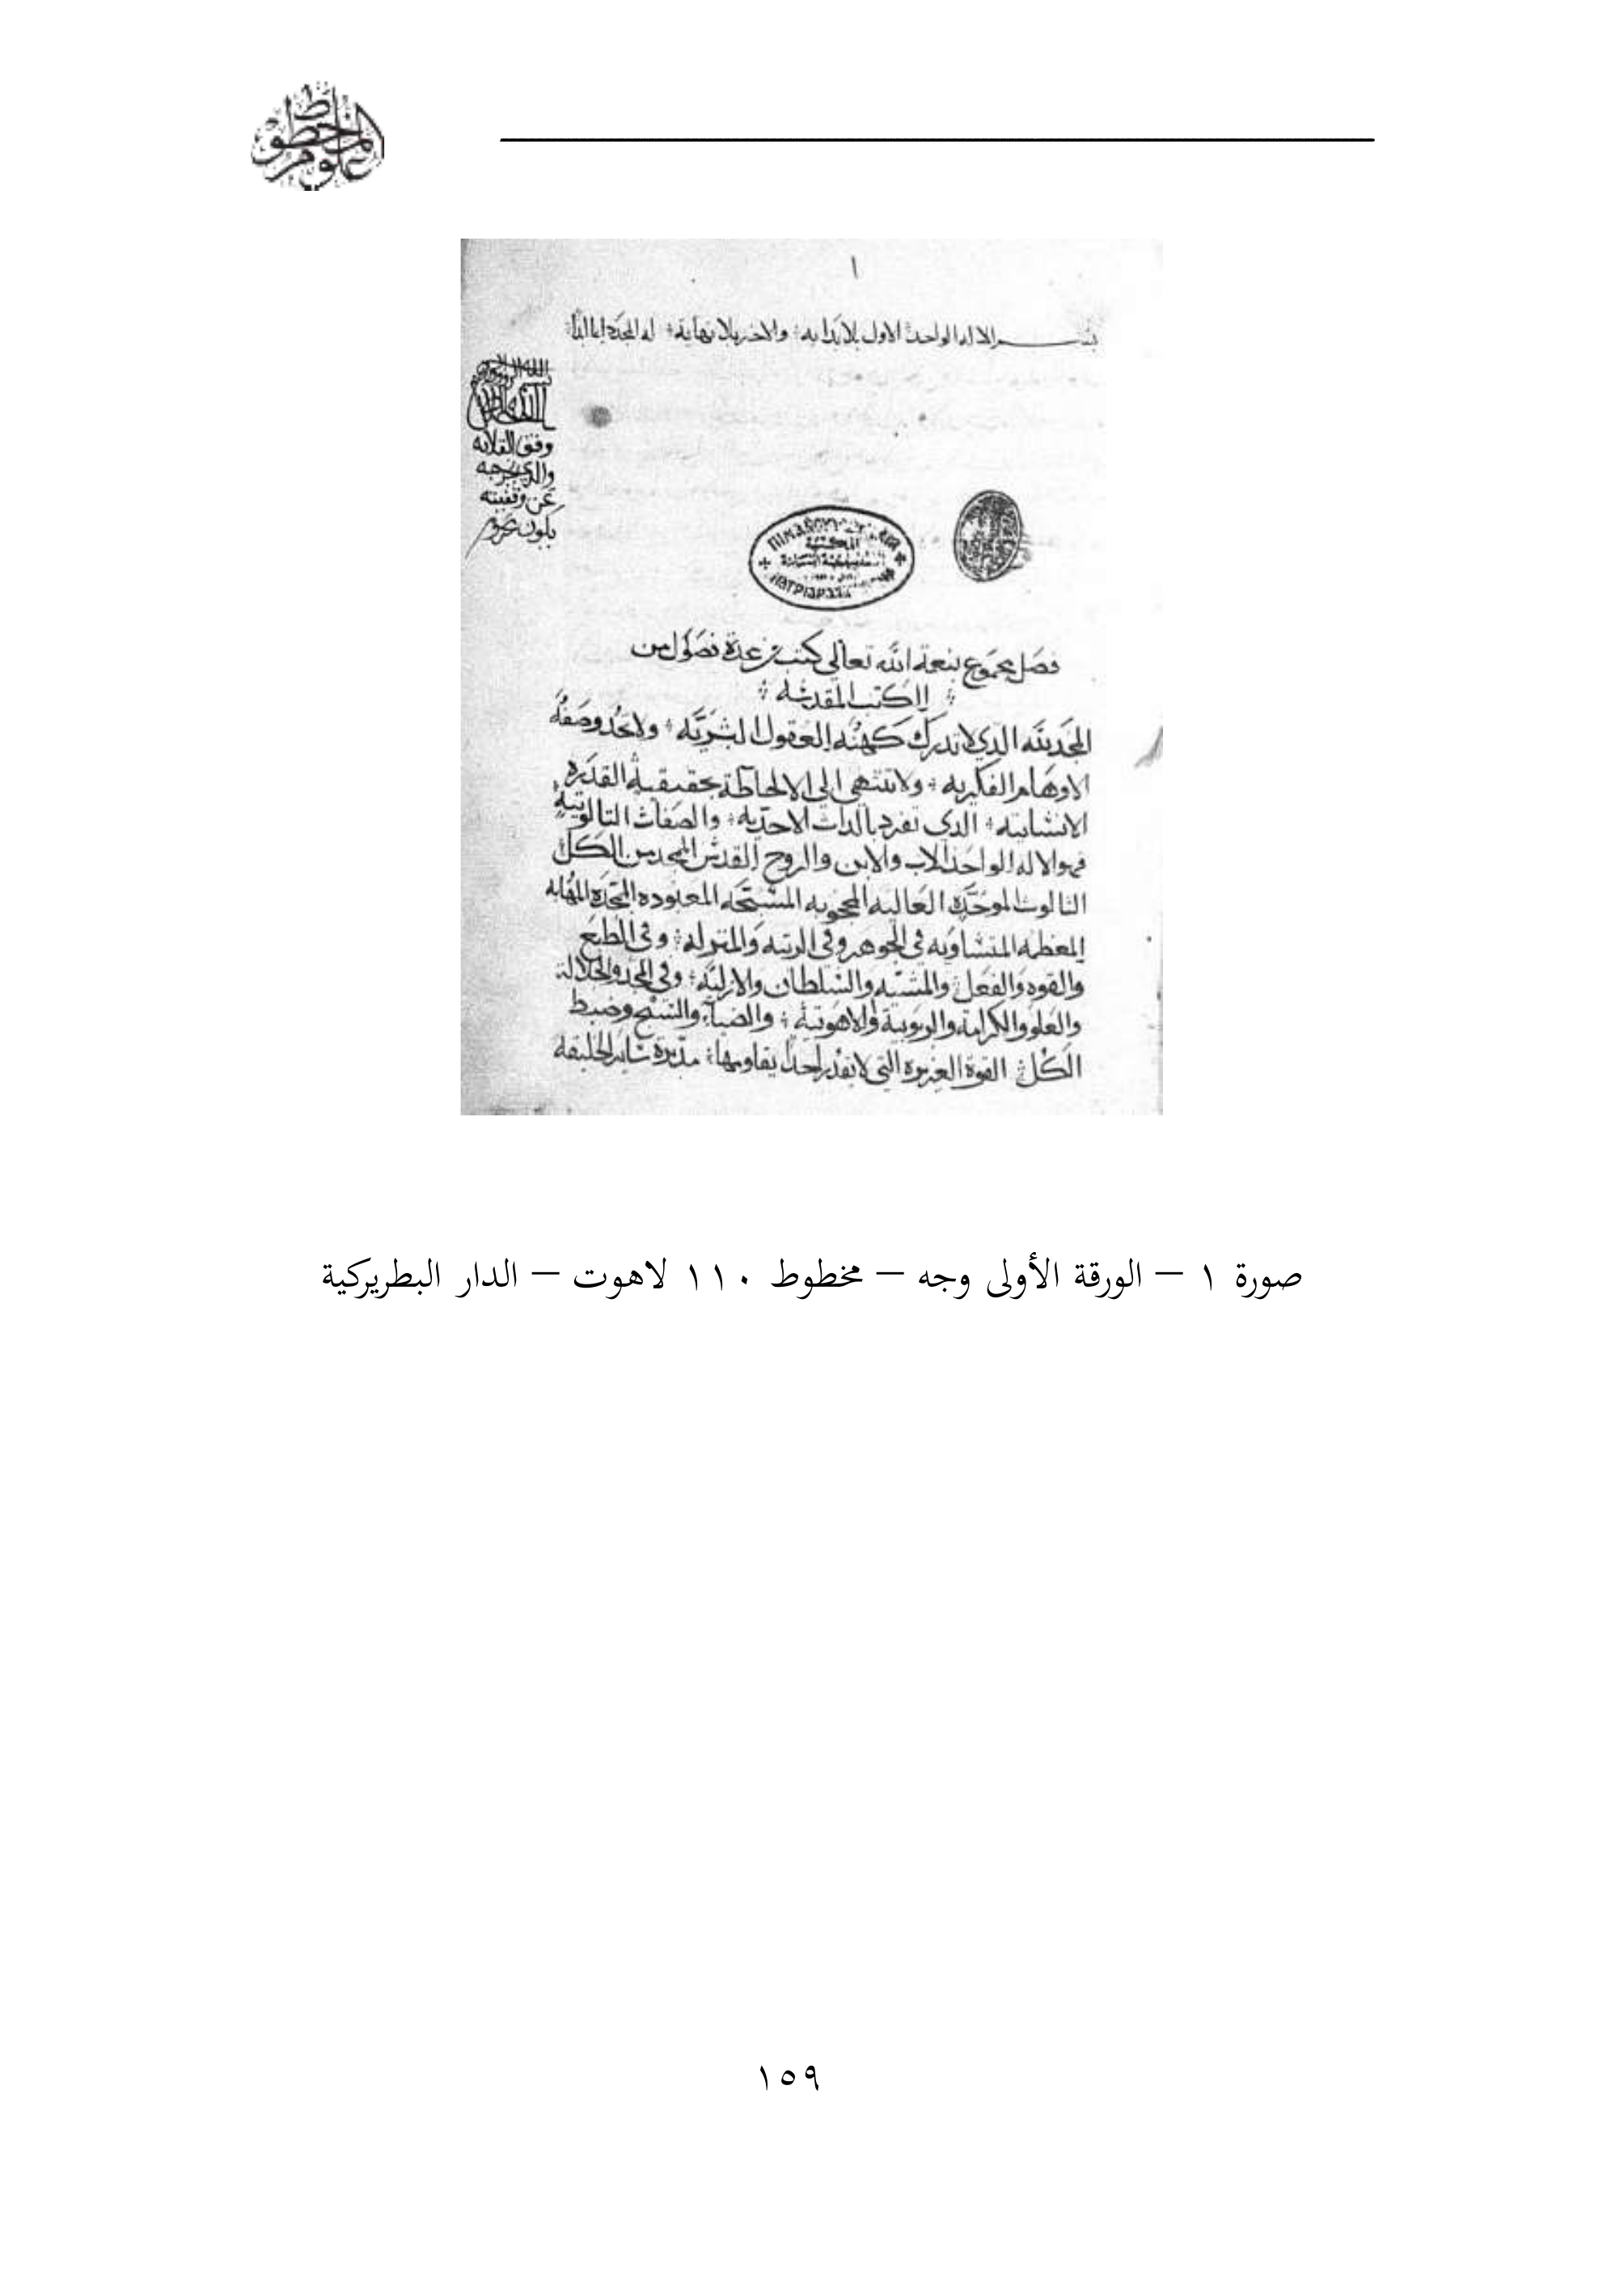 علوم المخطوط
١
بسم الاله الواحد الاول بلا بدايه والاخر بلا نهاية له المجد دايما
وقف القلايه
والدي يخرجه
عن وقفيته
يكون محروم
المكتبة
فصل مجموع بنعمة الله تعالي كتب من عدة فصول من
الكتب المقدسه
المجد لله الدي لا تدرك كهنه العقول البشريه ولا تحد وصفه
الاوهام الفكريه ولا تنتهي الي الاحاطة بحقيقية القدره
الانشانيه الدي تفرد بالدات الاحديه والصفات التالوتية
فهو الاله الواحد الاب والابن والروح القدس الممجد من الكل
التالوت الموحده العاليه المحجوبه المسبحه المعبوده الممجده المهابه
المعظمه المتساويه في الجوهر وفي الرتبه والمنزله وفي الطبع
والقوه والفعل والمشيه والسلطان والازليه وفي المجد والجلالة
والعلو والكرامة والربوبية والاهوتية والضياء والتسبيح وضبط
الكل القوة العزيزة التي لا يقدر احدا يقاومها مدبرة ساير الخليقه
صورة ١ – الورقة الأولى وجه – مخطوط ١١٠ لاهوت – الدار البطريركية
١٥٩